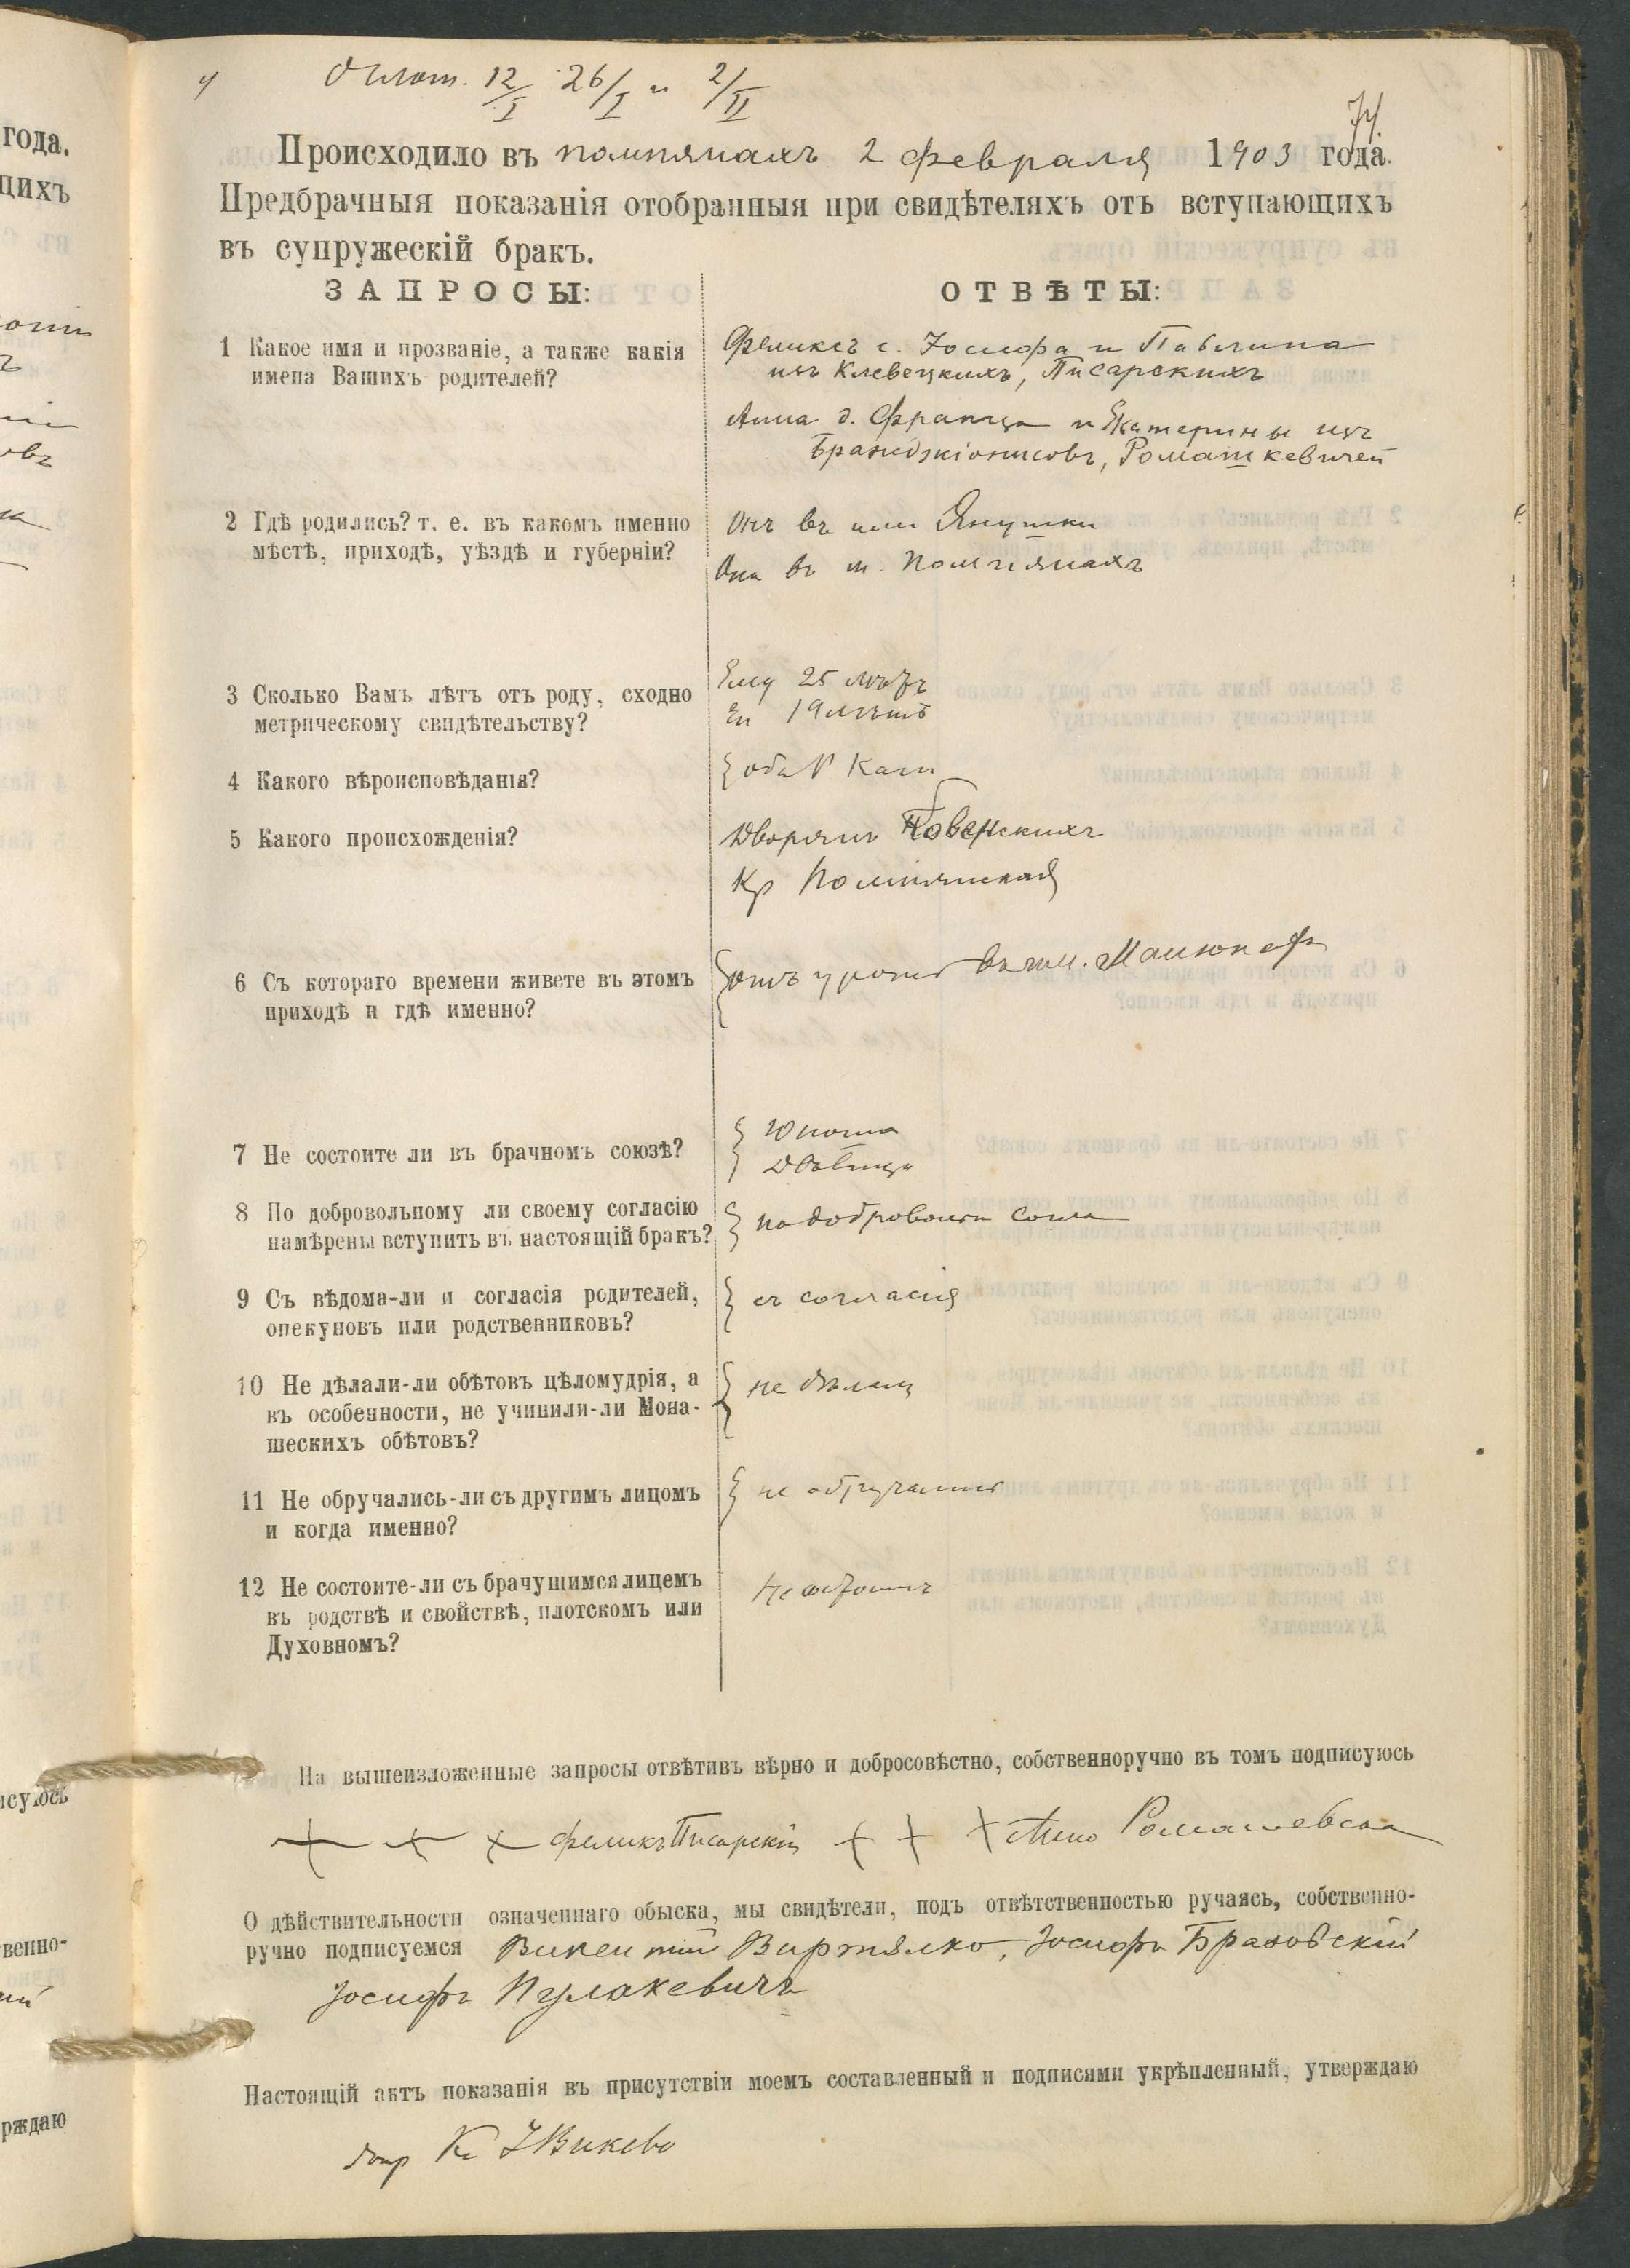 4
Оглаш. 12/I 26/I и 2/II
74.
Происходило въ помпянахъ 2 февраля 1903 года.
Предбрачныя показанія отобранныя при свидѣтеляхъ отъ вступающихъ
въ супружескій бракъ.
ЗАПРОСЫ:
ОТВѢТЫ:
1 Какое имя и прозваніе, а также какія
имена Вашихъ родителей?
Феликсъ с. Іосифа и Павлина
изъ Клевецкихъ, Писарскихъ
Анна д. Франца и Екатерины изъ
Бражджіонисовъ, Ромашкевичей
2 Гдѣ родились? т. е. въ какомъ именно
мѣстѣ, приходѣ, уѣздѣ и губерніи?
Онъ въ им Янушки
Она въ м. Помпянахъ
3 Сколько Вамъ лѣтъ отъ роду, сходно
метрическому свидѣтельству?
Ему 25 лѣтъ
Ей 19 лѣтъ
4 Какого вѣроисповѣданія?
оба Р Кат
5 Какого происхожденія?
Дворянъ Ковенскихъ
Кр Помпянская
6 Съ котораго времени живете въ этомъ
приходѣ и гдѣ именно?
отъ урожд въ
7 Не состоите ли въ брачномъ союзѣ?
Юноша
Дѣвица
8 По добровольному ли своему согласію
намѣрены вступить въ настоящій бракъ?
по добровольн согла
9 Съ вѣдома-ли и согласія родителей,
опекуновъ или родственниковъ?
съ согласія
10 Не дѣлали-ли обѣтовъ цѣломудрія, а
въ особенности, не учинили-ли Мона-
шескихъ обѣтовъ?
не дѣлали
11 Не обручались-ли съ другимъ лицомъ
и когда именно?
не обручались
12 Не состоите-ли съ брачущимся лицемъ
въ родствѣ и свойствѣ, плотскомъ или
Духовномъ?
Не состоимъ
На вышеизложенные запросы отвѣтивъ вѣрно и добросовѣстно, собственноручно въ томъ подписуюсь
+ + + Феликъ Писарскій + + + Анно Ромашевска
О дѣйствительности означеннаго обыска, мы свидѣтели, подъ отвѣтственностью ручаясь, собственно-
ручно подписуемся Викентій Виртялко, Іосифъ Бразовскій
Іосифъ Пулакевичъ
Настоящій актъ показанія въ присутствіи моемъ составленный и подписями укрѣпленный, утверждаю
Кс